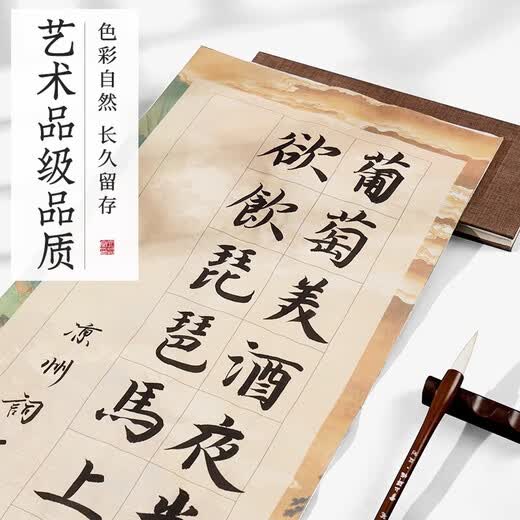 艺术品级品质
色彩自然 长久留存
葡萄美酒夜
欲飲琵琶馬上
凉州詞